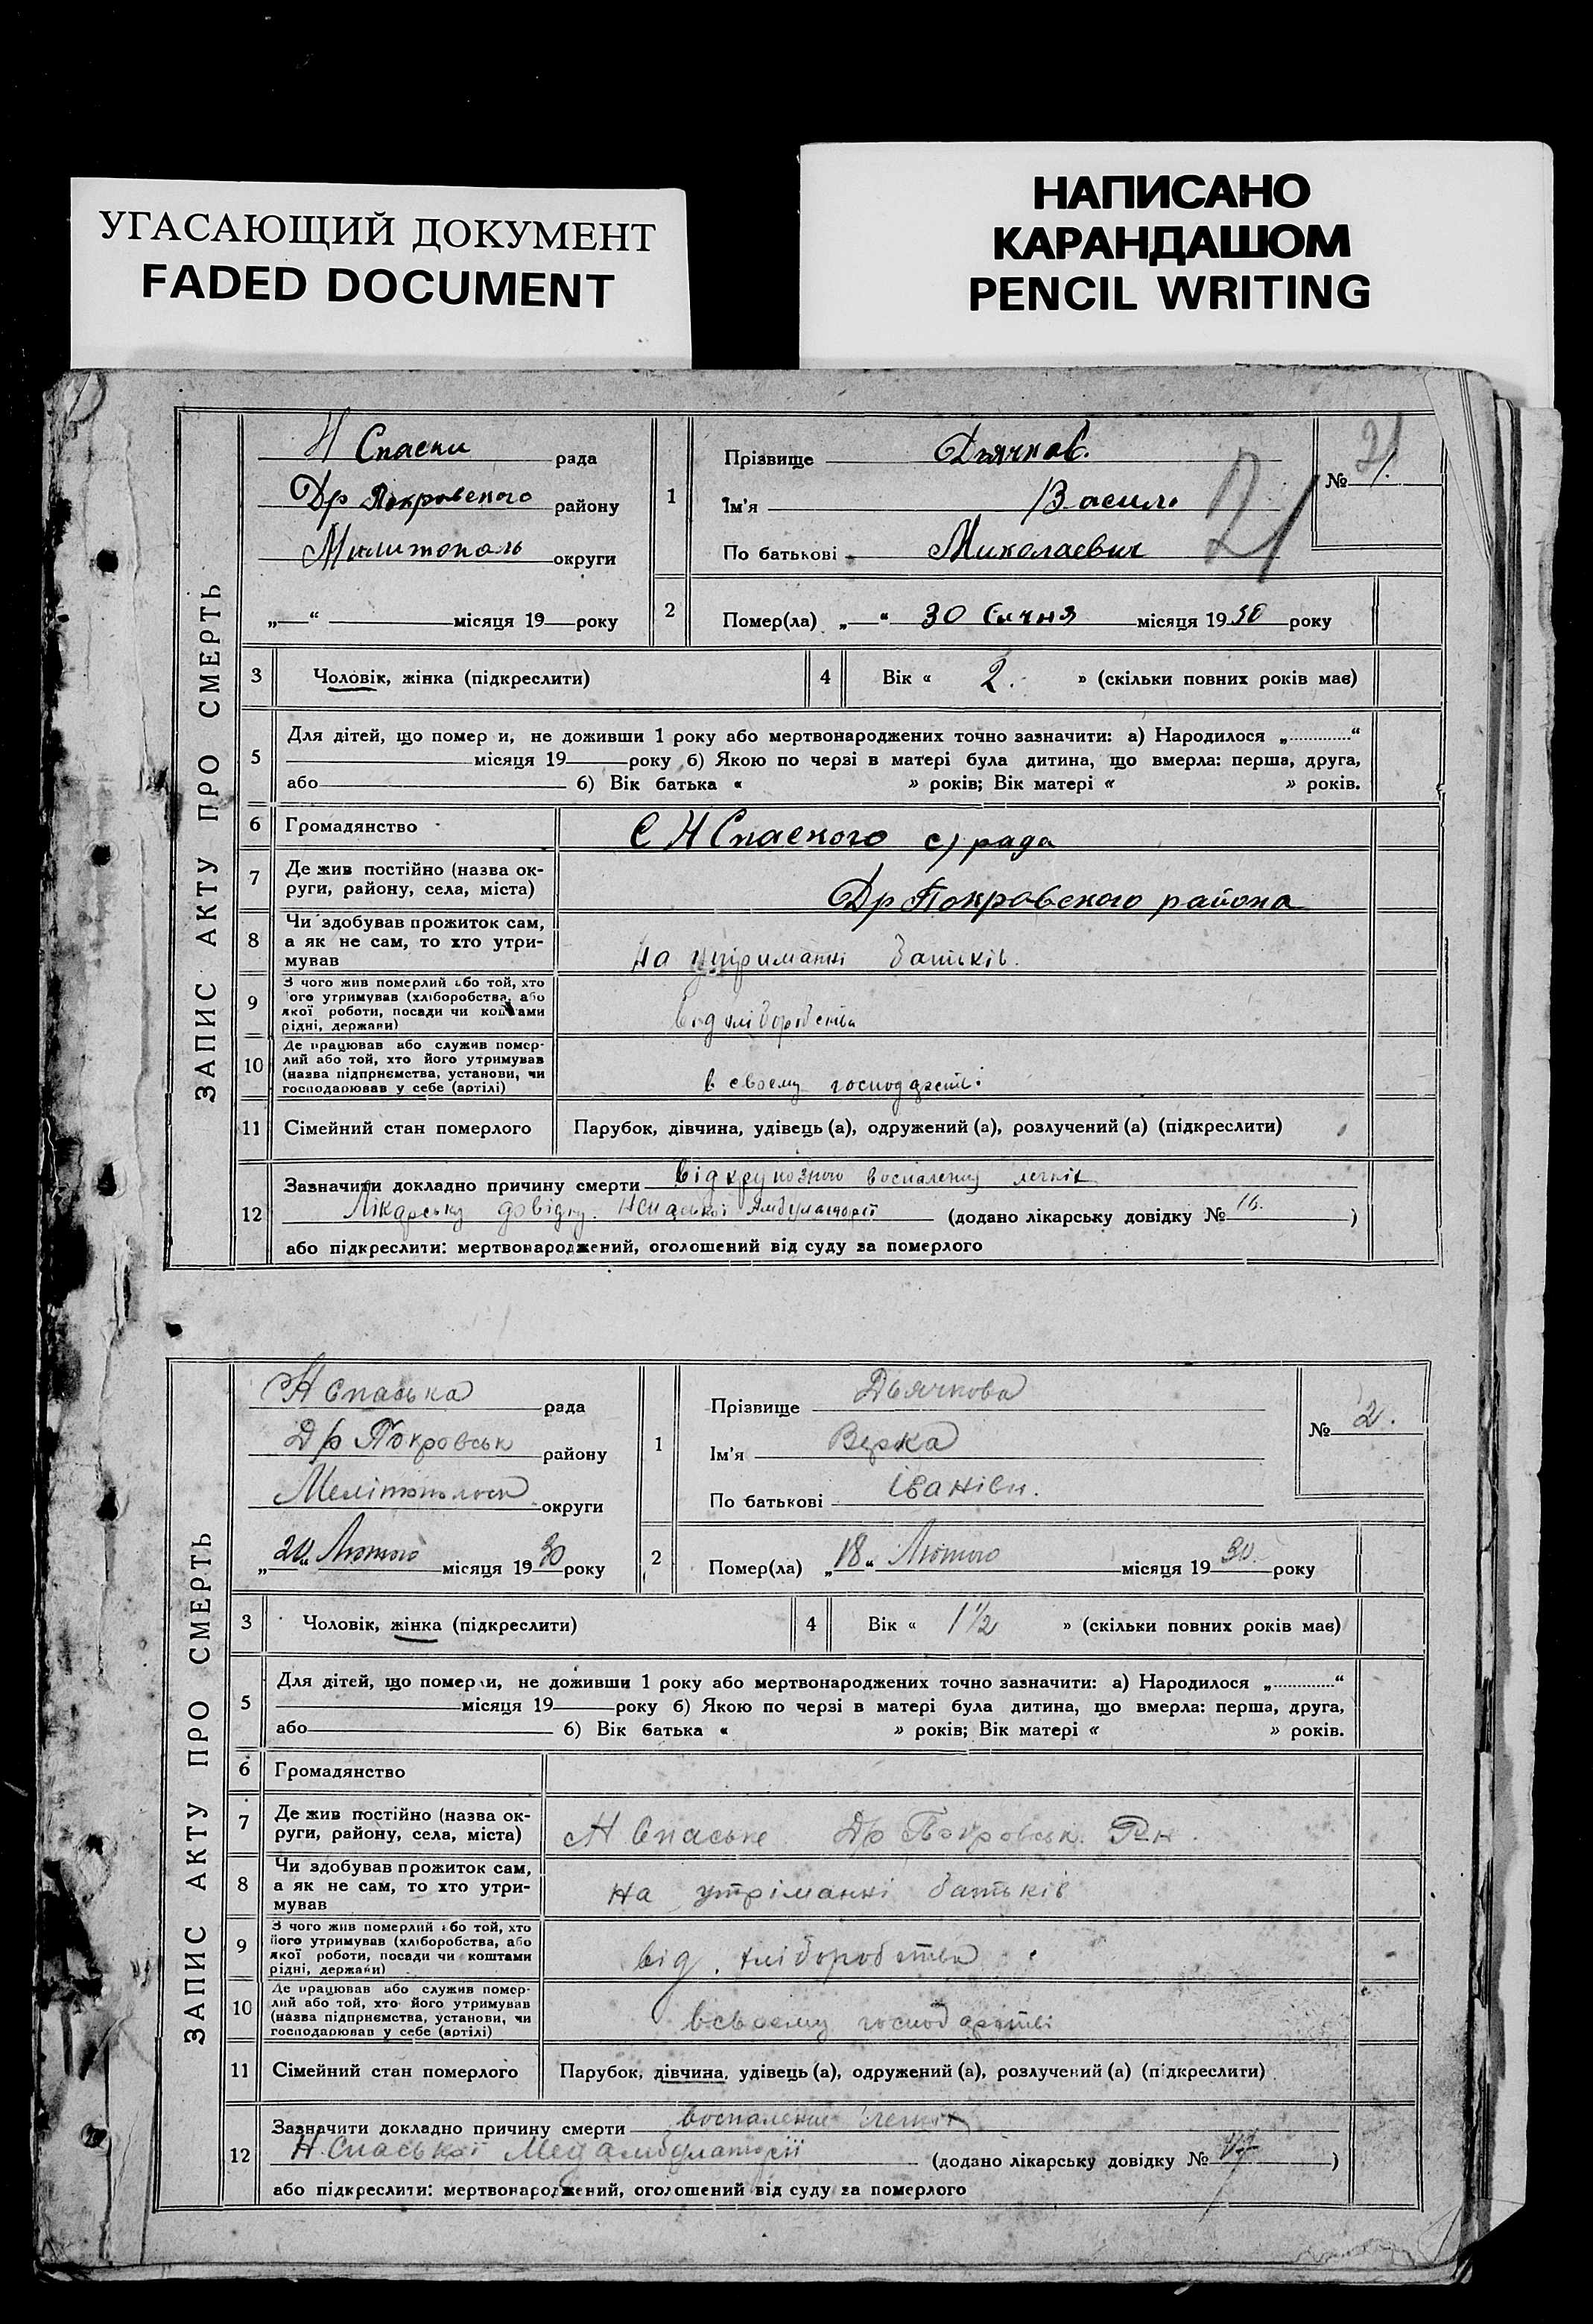 УГАСАЮЩИЙ ДОКУМЕНТ
FADED DOCUMENT
НАПИСАНО
КАРАНДАШОМ
PENCIL WRITING
ЗАПИС АКТУ ПРО СМЕРТЬ
Н Спаски рада
Др Покровского району
Милитополь округи
„ “ місяця 19 року
1 Прізвище Дьячков.
Ім'я Василь
По батькові Миколаевич
21
№ 1.
21
2 Помер(ла) „ “ 30 Січня місяця 1930 року
3 Чоловік, жінка (підкреслити)
4 Вік « 2. » (скільки повних років має)
5 Для дітей, що помер и, не доживши 1 року або мертвонароджених точно зазначити: а) Народилося „ “
місяця 19 року б) Якою по черзі в матері була дитина, що вмерла: перша, друга,
або б) Вік батька « » років; Вік матері « » років.
6 Громадянство С Н Спаского с/рада
7 Де жив постійно (назва ок-
руги, району, села, міста) Др Покровского района
8 Чи здобував прожиток сам,
а як не сам, то хто утри-
мував на утриманні батьків.
9 З чого жив померлий або той, хто
ого утримував (хліборобства, або
якої роботи, посади чи коштами
рідні, держави) від хліборобства
10 Де працював або служив помер-
лий або той, хто його утримував
(назва підприємства, установи, чи
господарював у себе (артілі) в своему господарстві.
11 Сімейний стан померлого Парубок, дівчина, удівець (а), одружений (а), розлучений (а) (підкреслити)
12 Зазначити докладно причину смерти від крупозного воспаления легкіх
Лікарську довідку. Нспаської Амбулаторії (додано лікарську довідку № 16. )
або підкреслити: мертвонароджений, оголошений від суду за померлого
ЗАПИС АКТУ ПРО СМЕРТЬ
Н Спаська рада
Др Покровськ району
Мелітопольск округи
„20“ Лютого місяця 1930 року
1 Прізвище Дьячкова
Ім'я Верка
По батькові Іванівн.
№ 2.
2 Помер(ла) „18“ Лютого місяця 1930. року
3 Чоловік, жінка (підкреслити)
4 Вік « 1 1/2 » (скільки повних років має)
5 Для дітей, що помер и, не доживши 1 року або мертвонароджених точно зазначити: а) Народилося „ “
місяця 19 року б) Якою по черзі в матері була дитина, що вмерла: перша, друга,
або б) Вік батька « » років; Вік матері « » років.
6 Громадянство
7 Де жив постійно (назва ок-
руги, району, села, міста) Н Спаське Др Покровськ. Р-н.
8 Чи здобував прожиток сам,
а як не сам, то хто утри-
мував на утріманні батьків
9 З чого жив померлий або той, хто
його утримував (хліборобства, або
якої роботи, посади чи коштами
рідні, держави) від. хліборобства
10 Де працював або служив помер-
лий або той, хто його утримував
(назва підприємства, установи, чи
господарював у себе (артілі) всвоему господарстві
11 Сімейний стан померлого Парубок, дівчина, удівець (а), одружений (а), розлучений (а) (підкреслити)
12 Зазначити докладно причину смерти воспаление легких
Н. Спаської Медамбулаторії (додано лікарську довідку № 17 )
або підкреслити: мертвонароджений, оголошений від суду за померлого